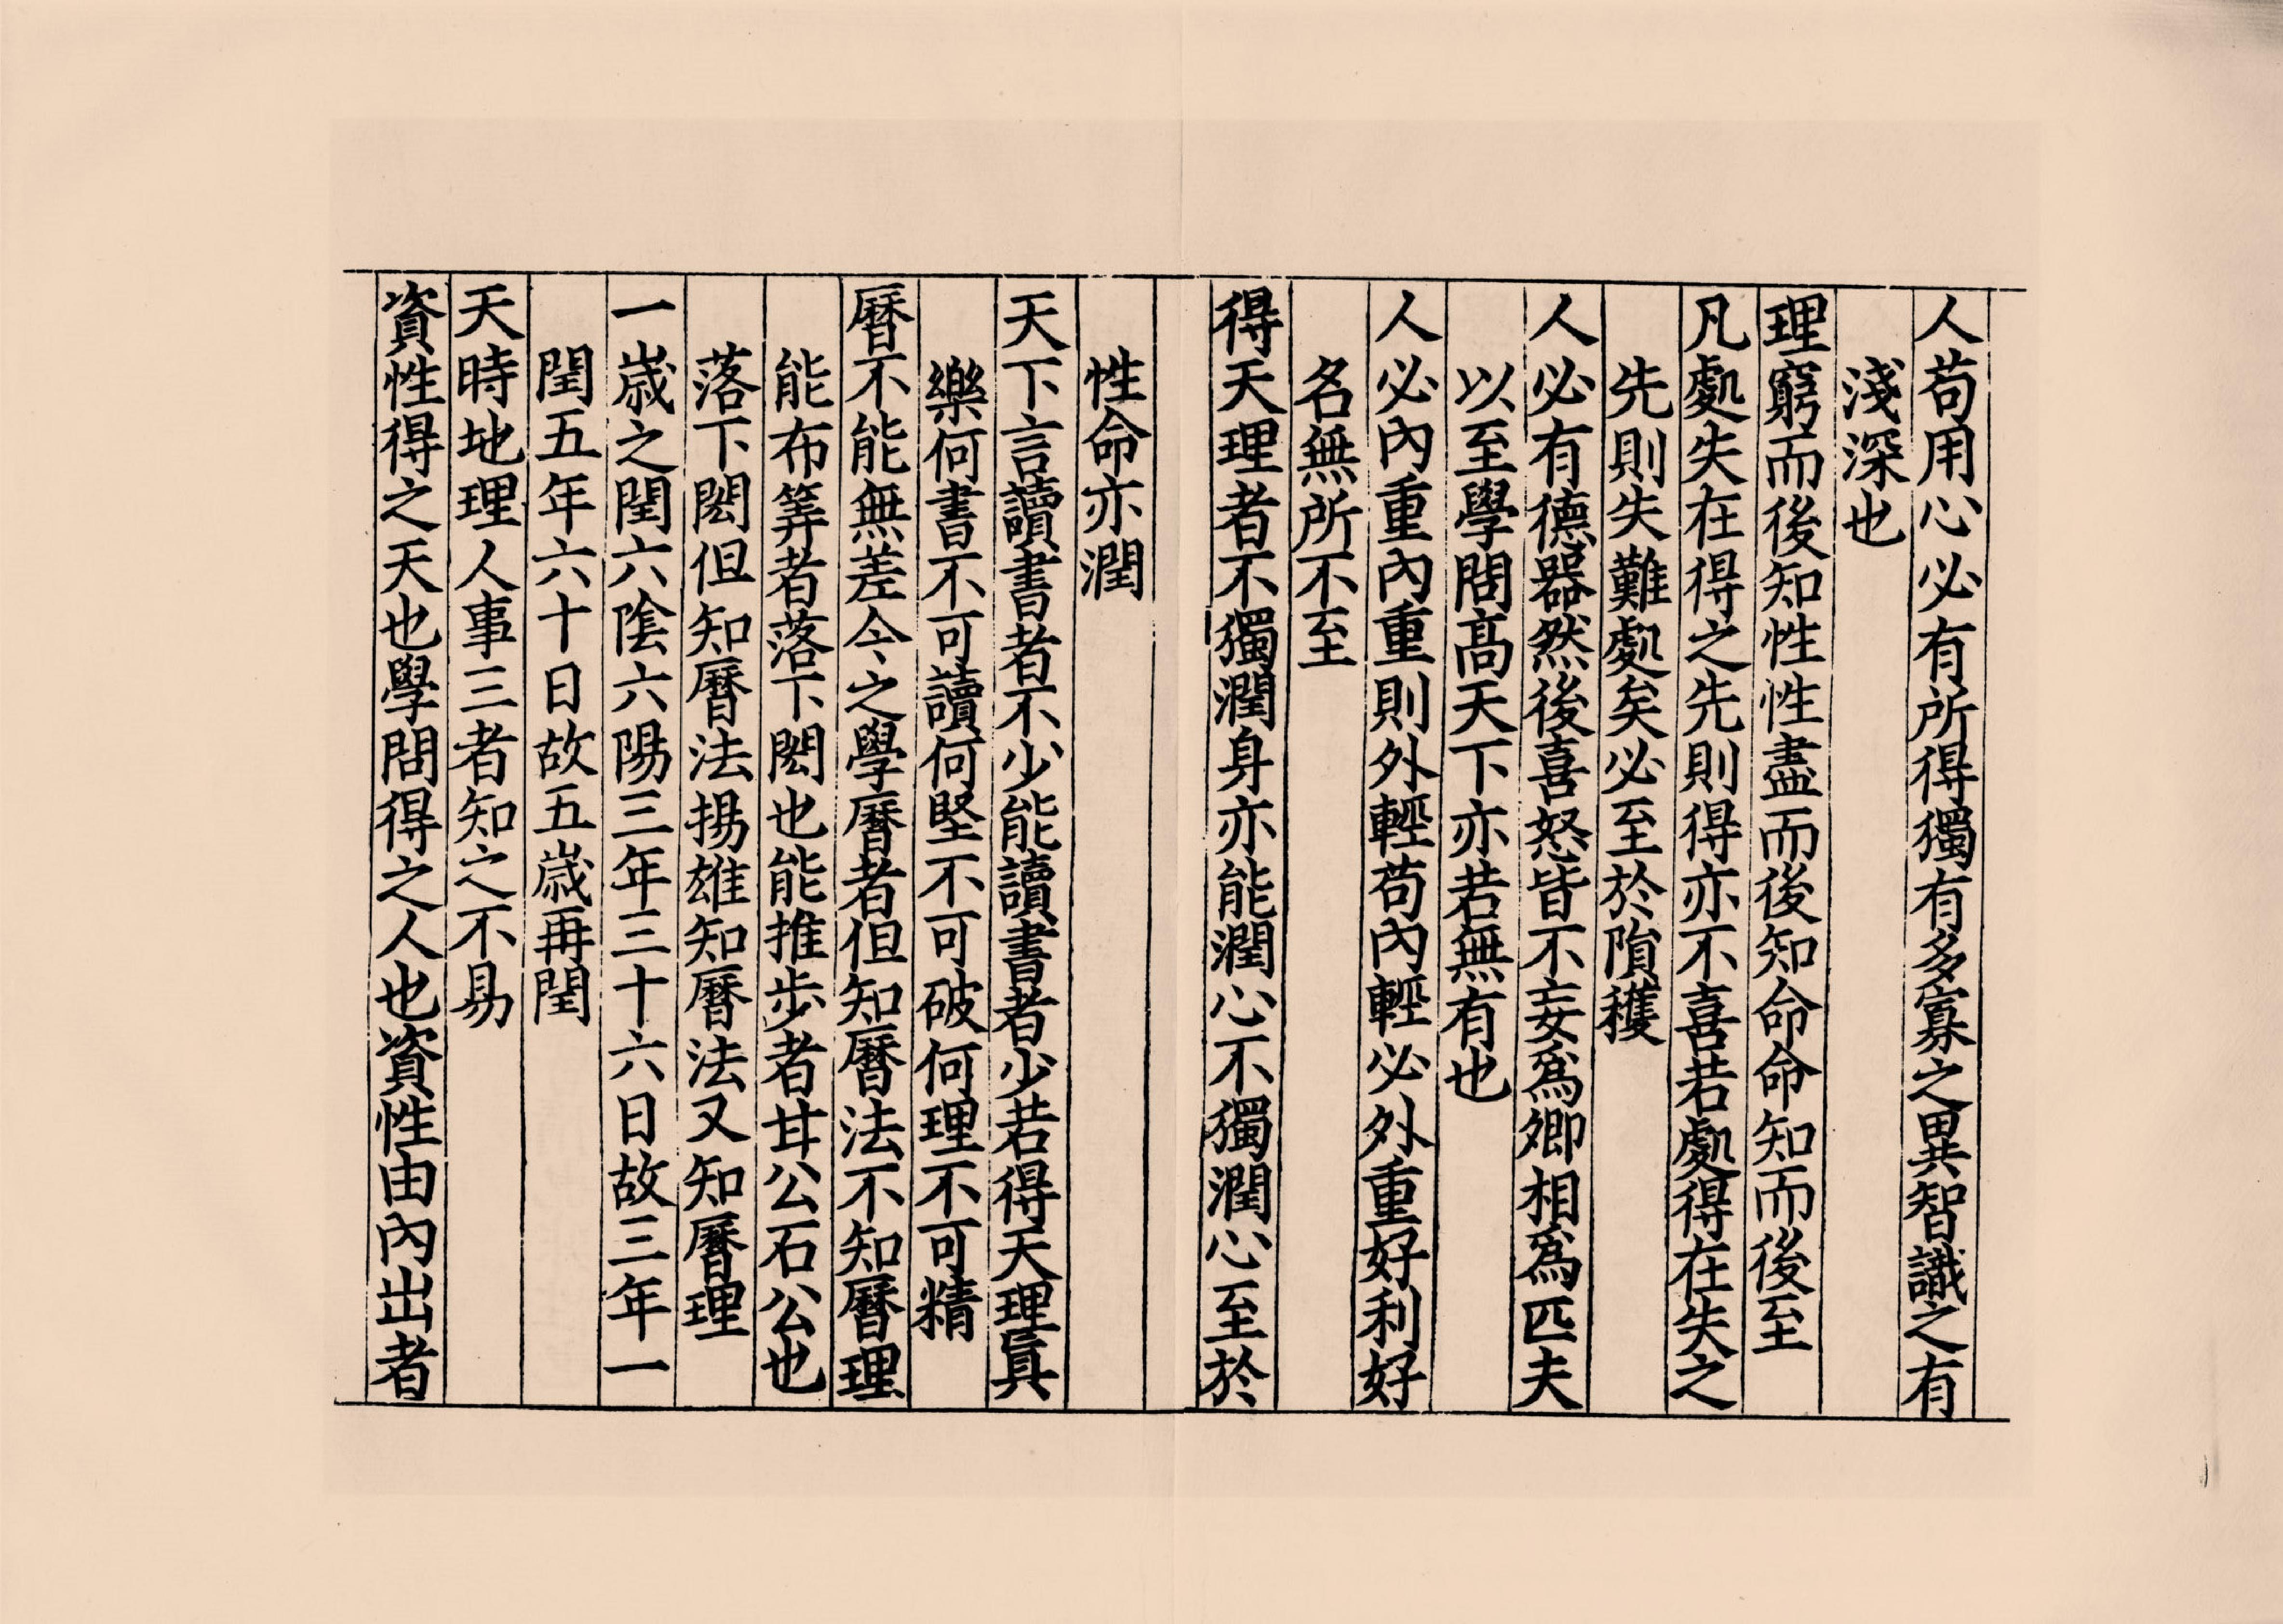 人苟用心必有所得獨有多寡之異智識之有
淺深也
理窮而後知性性盡而後知命命知而後至
凡處失在得之先則得亦不喜若處得在失之
先則失難處矣必至於隕穫
人必有德器然後喜怒皆不妄爲卿相爲匹夫
以至學問高天下亦若無有也
人必內重內重則外輕苟內輕必外重好利好
名無所不至
得天理者不獨潤身亦能潤心不獨潤心至於
性命亦潤
天下言讀書者不少能讀書者少若得天理真
樂何書不可讀何堅不可破何理不可精
曆不能無差今之學曆者但知曆法不知曆理
能布筭者落下閎也能推步者甘公石公也
落下閎但知曆法揚雄知曆法又知曆理
一歲之閏六陰六陽三年三十六日故三年一
閏五年六十日故五歲再閏
天時地理人事三者知之不易
資性得之天也學問得之人也資性由內出者